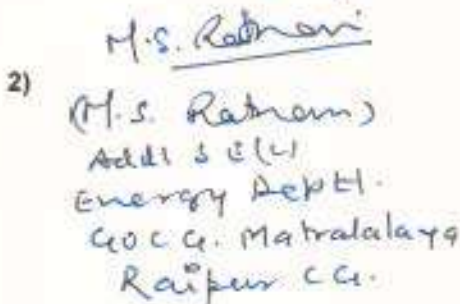 M.S. Ratnam
2)
(M.S. Ratnam)
Addl S E(L)
Energy Deptt.
GOCG. Matralalaya
Raipur CG.